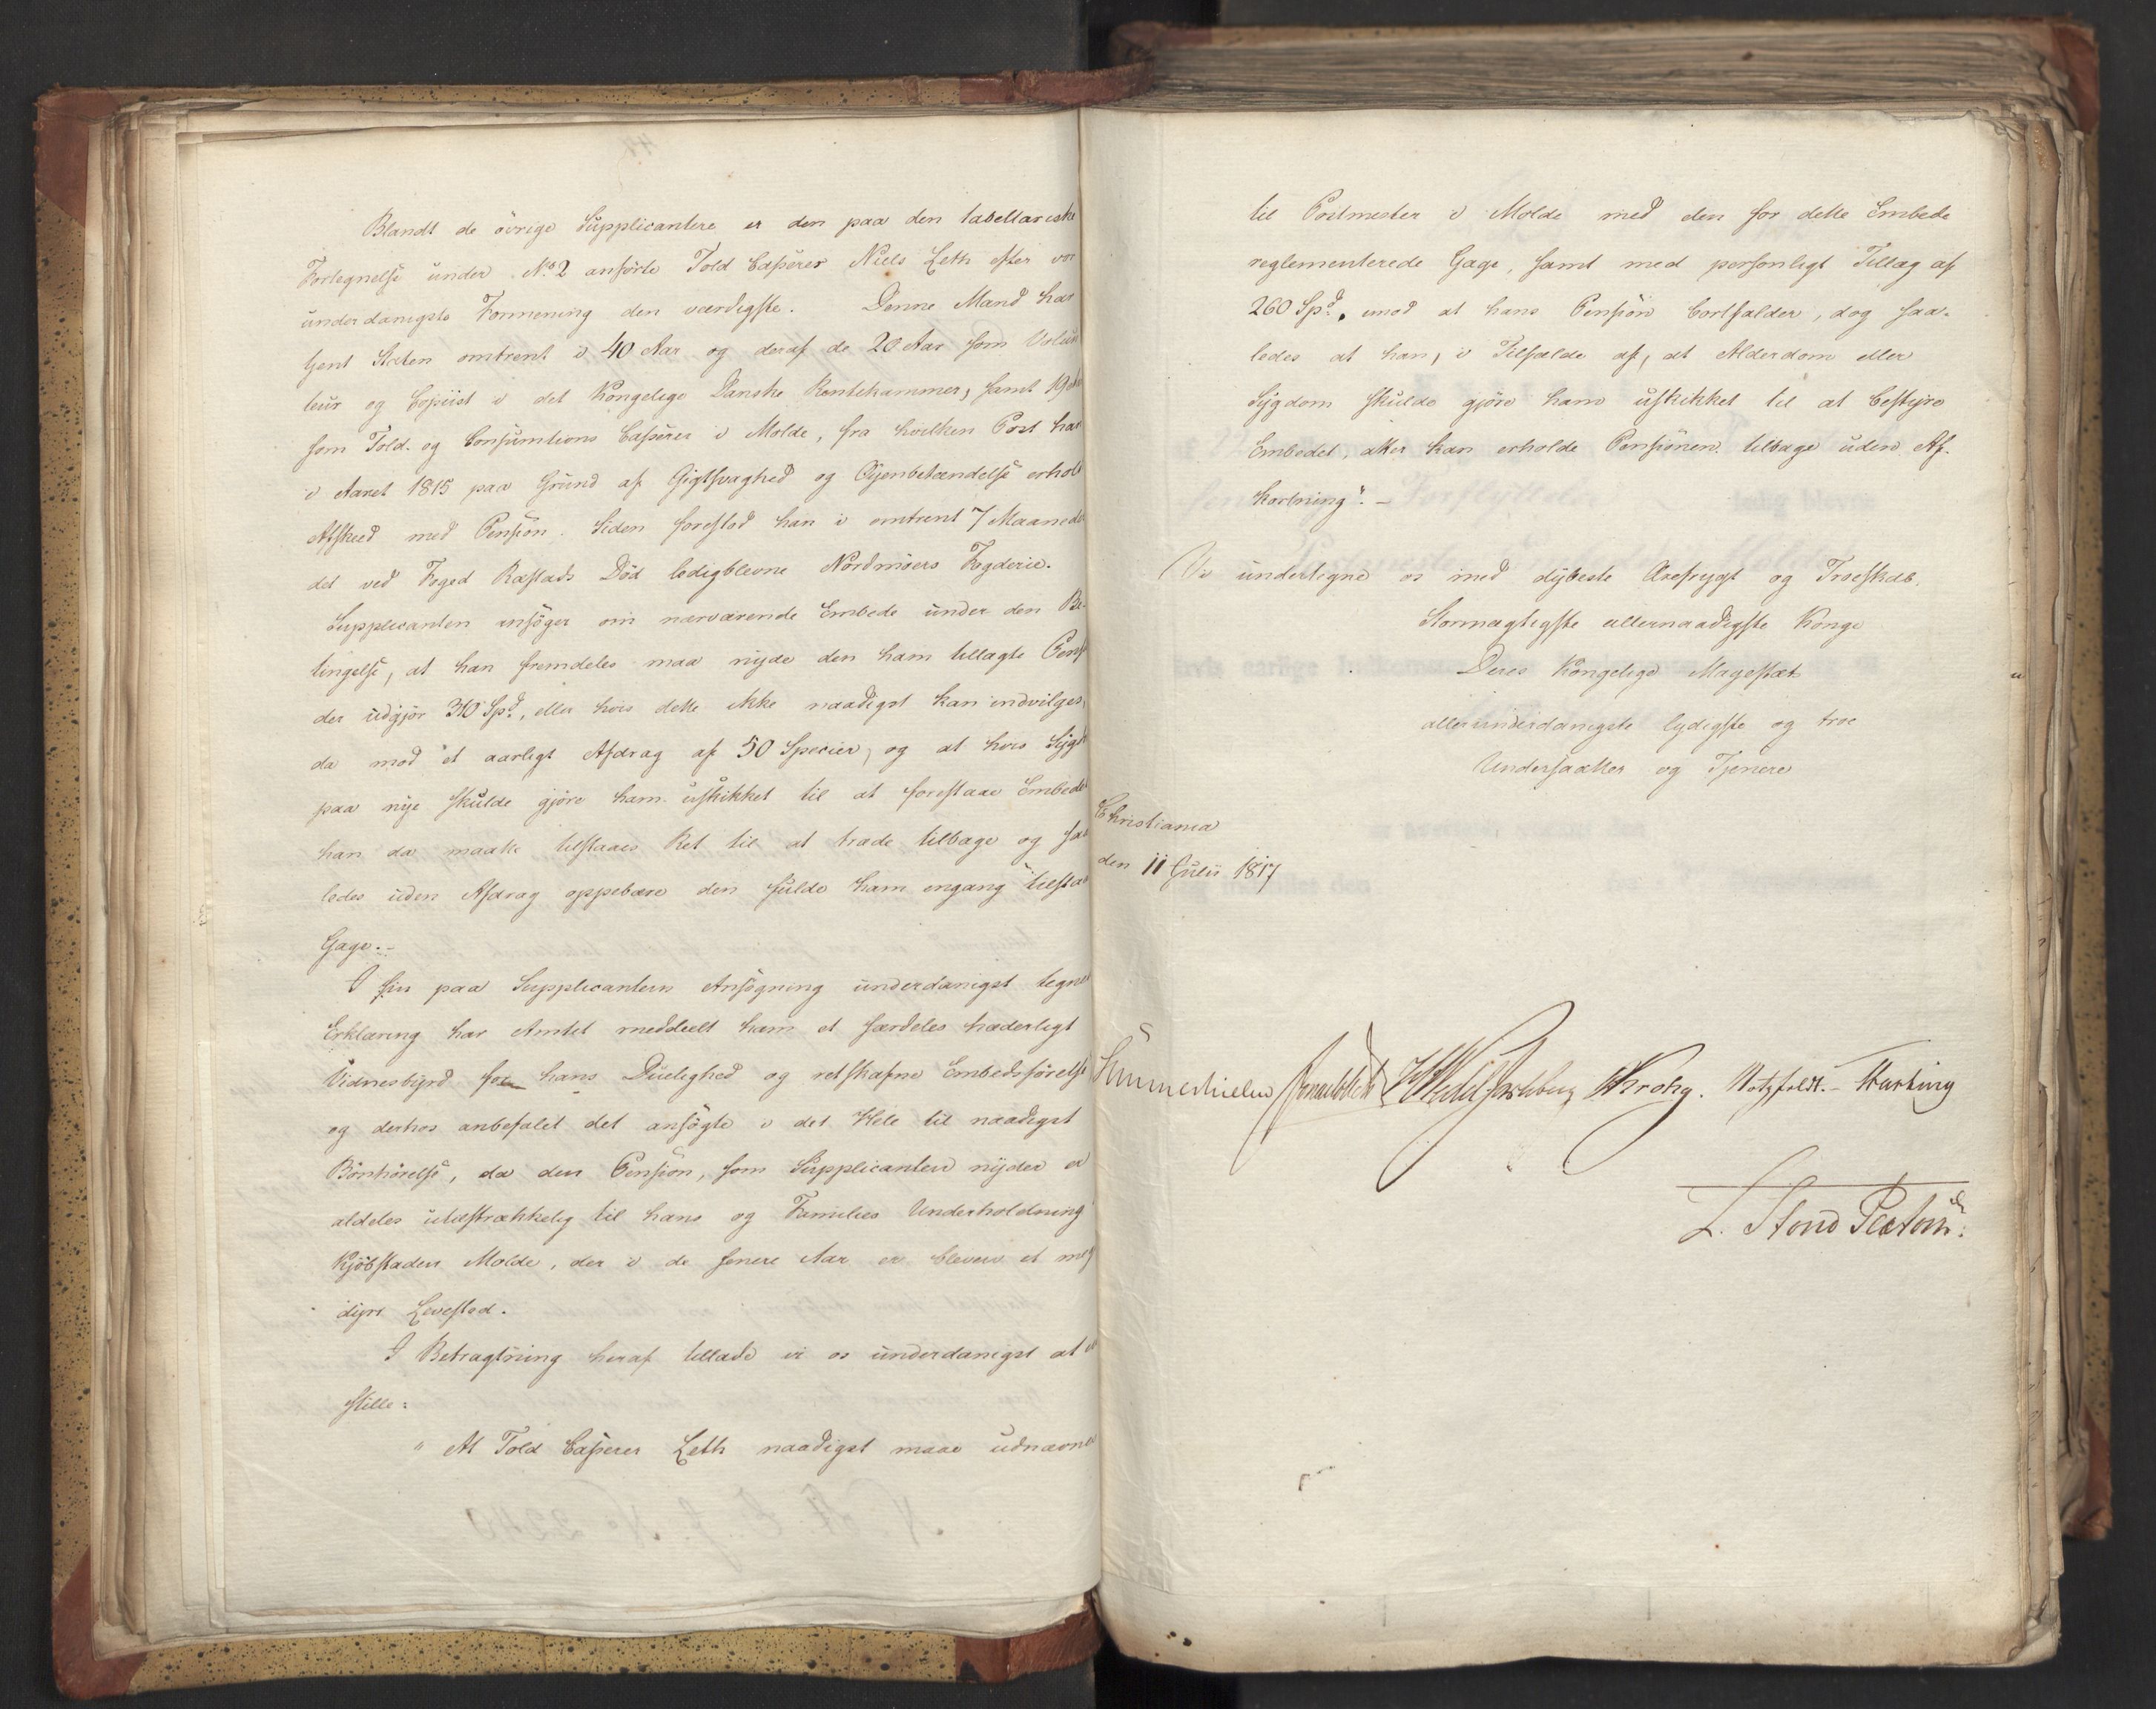 Blandt de övrige Supplicantere er den paa den tabellariske
Fortegnelse under No 2 anförte Told Casserer Niels Leth efter vor
underdanigste Formening den værdigste. Denne Mand har
tjent Staten omtrent i 40 Aar og deraf de 20 Aar som Volun
teur og Copiist i det Kongelige Danske Rentekammer, samt 19
som Told- og Consumtions Casserer i Molde, fra hvilken Post han
i Aaret 1815 paa Grund af Gigtsvaghed og Öyenbetændelse erholdt
Afskeed med Pension. Siden forestod han i omtrent 7 Maaneder
det ved Foged Ræstads Död ledigblevne Nordmöers Fogderie.
Supplicanten ansöger om nærværende Embede under den Be-
tingelse, at han fremdeles maa nyde den ham tillagte Pens
der udgjör 310 Spd, eller hvis dette ikke naadigst kan indvilges,
da mod et aarligt Afdrag af 50 Specier, og at hvis Sygd
paa nye skulde gjöre ham uskikket til at forestaae Embedet
han da maatte tilstaaes Ret til at træde tilbage og saa
ledes uden Afdrag oppebære den fulde ham engang tilsta
Gage.-
I sin paa Supplicantens Ansögning underdanigst tegne
Erklæring har Amtet meddeelt ham et særdeles hæderligt
Vidnesbyrd for hans Duelighed og retskafne Embedsförelse
og derhos anbefalet det ansögte i det Hele til naadigst
Bönhörelse, da den Pension, som Supplicanten nyder er
aldeles utilstrækkelig til hans og Families Underholdning
Kjöbstaden Molde, der i de senere Aar er bleven et meg
dyrt Levested.
I Betragtning heraf tillade vi os underdanigst at
stille:
" At Told Casserer Leth naadigst maae udnævnes
til Postmester i Molde med den for dette Embede
reglementerede Gage, samt med personligt Tillæg af
260 Spd, imod at hans Pension bortfalder, dog saa-
ledes at han, i Tilfælde af, at Alderdom eller
Sygdom skulde gjöre ham uskikket til at bestyre
Embedet, atter kan erholde Pensionen tilbage uden Af-
kortning". -
Vi undertegne os med dybeste Ærefrygt og Troeskab,
Stormægtigste allernaadigste Konge
Deres Kongelige Majestæts
allerunderdanigste lydigste og troe
Undersaatter og Tjenere
Christiania
den 11 Julii 1817
Sommerhielm Wedel Jarlsberg Krohg. Motzfeldt.- Hartving
L. Stoud Platou